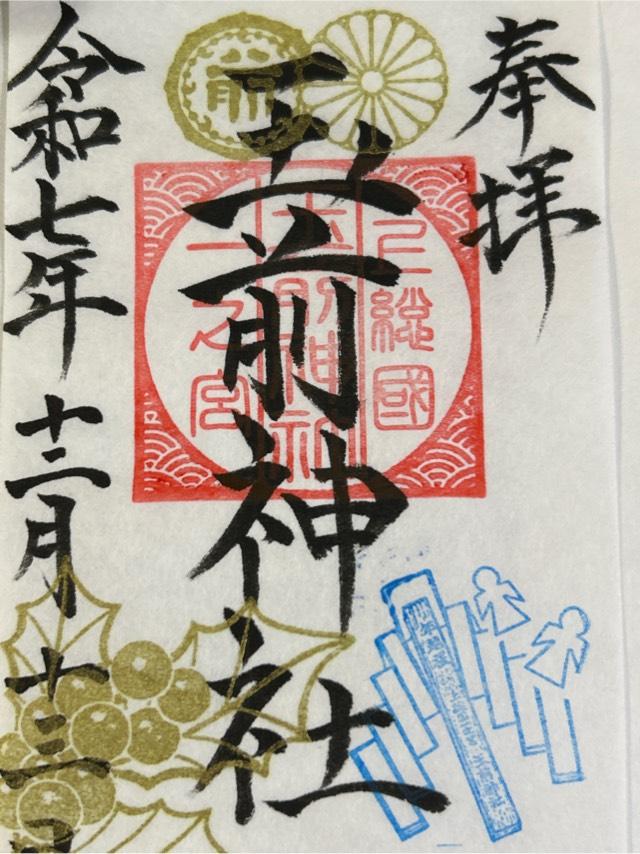 奉拝
上總國
玉前神社
一之宮
玉前神社
令和七年 十二月 十三日